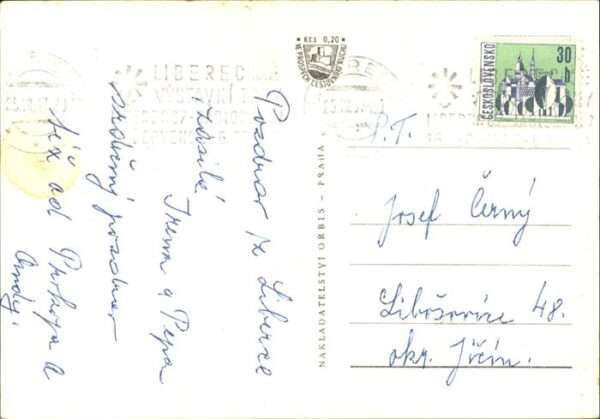 Pozdrav z Liberce
zasílá
Irena a Pepa
srdečný pozdrav
též od
Kčs 0,20
VE PROSPĚCH ČS. JESLOVÉHO RUCHU
LIBEREC
VÝSTAVNÍ
ČESKOSLOVENSKO
30
h
NAKLADATELSTVÍ ORBIS – PRAHA
P. T.
Josef Černý
Libošovice 48.
okr. Jičín.